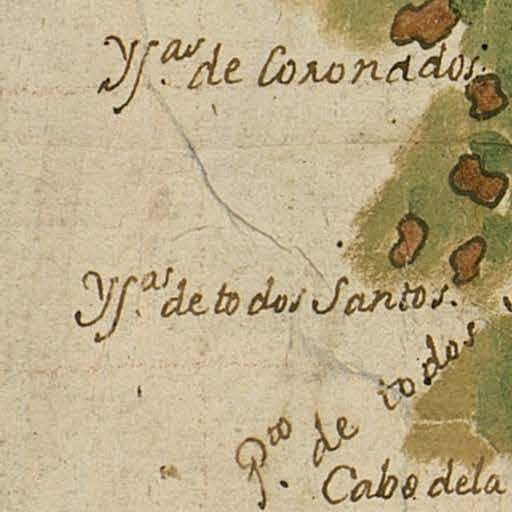 Ys.as de Coronados.
Ys.as de todos Santos.
P.to de todos
Cabo de la